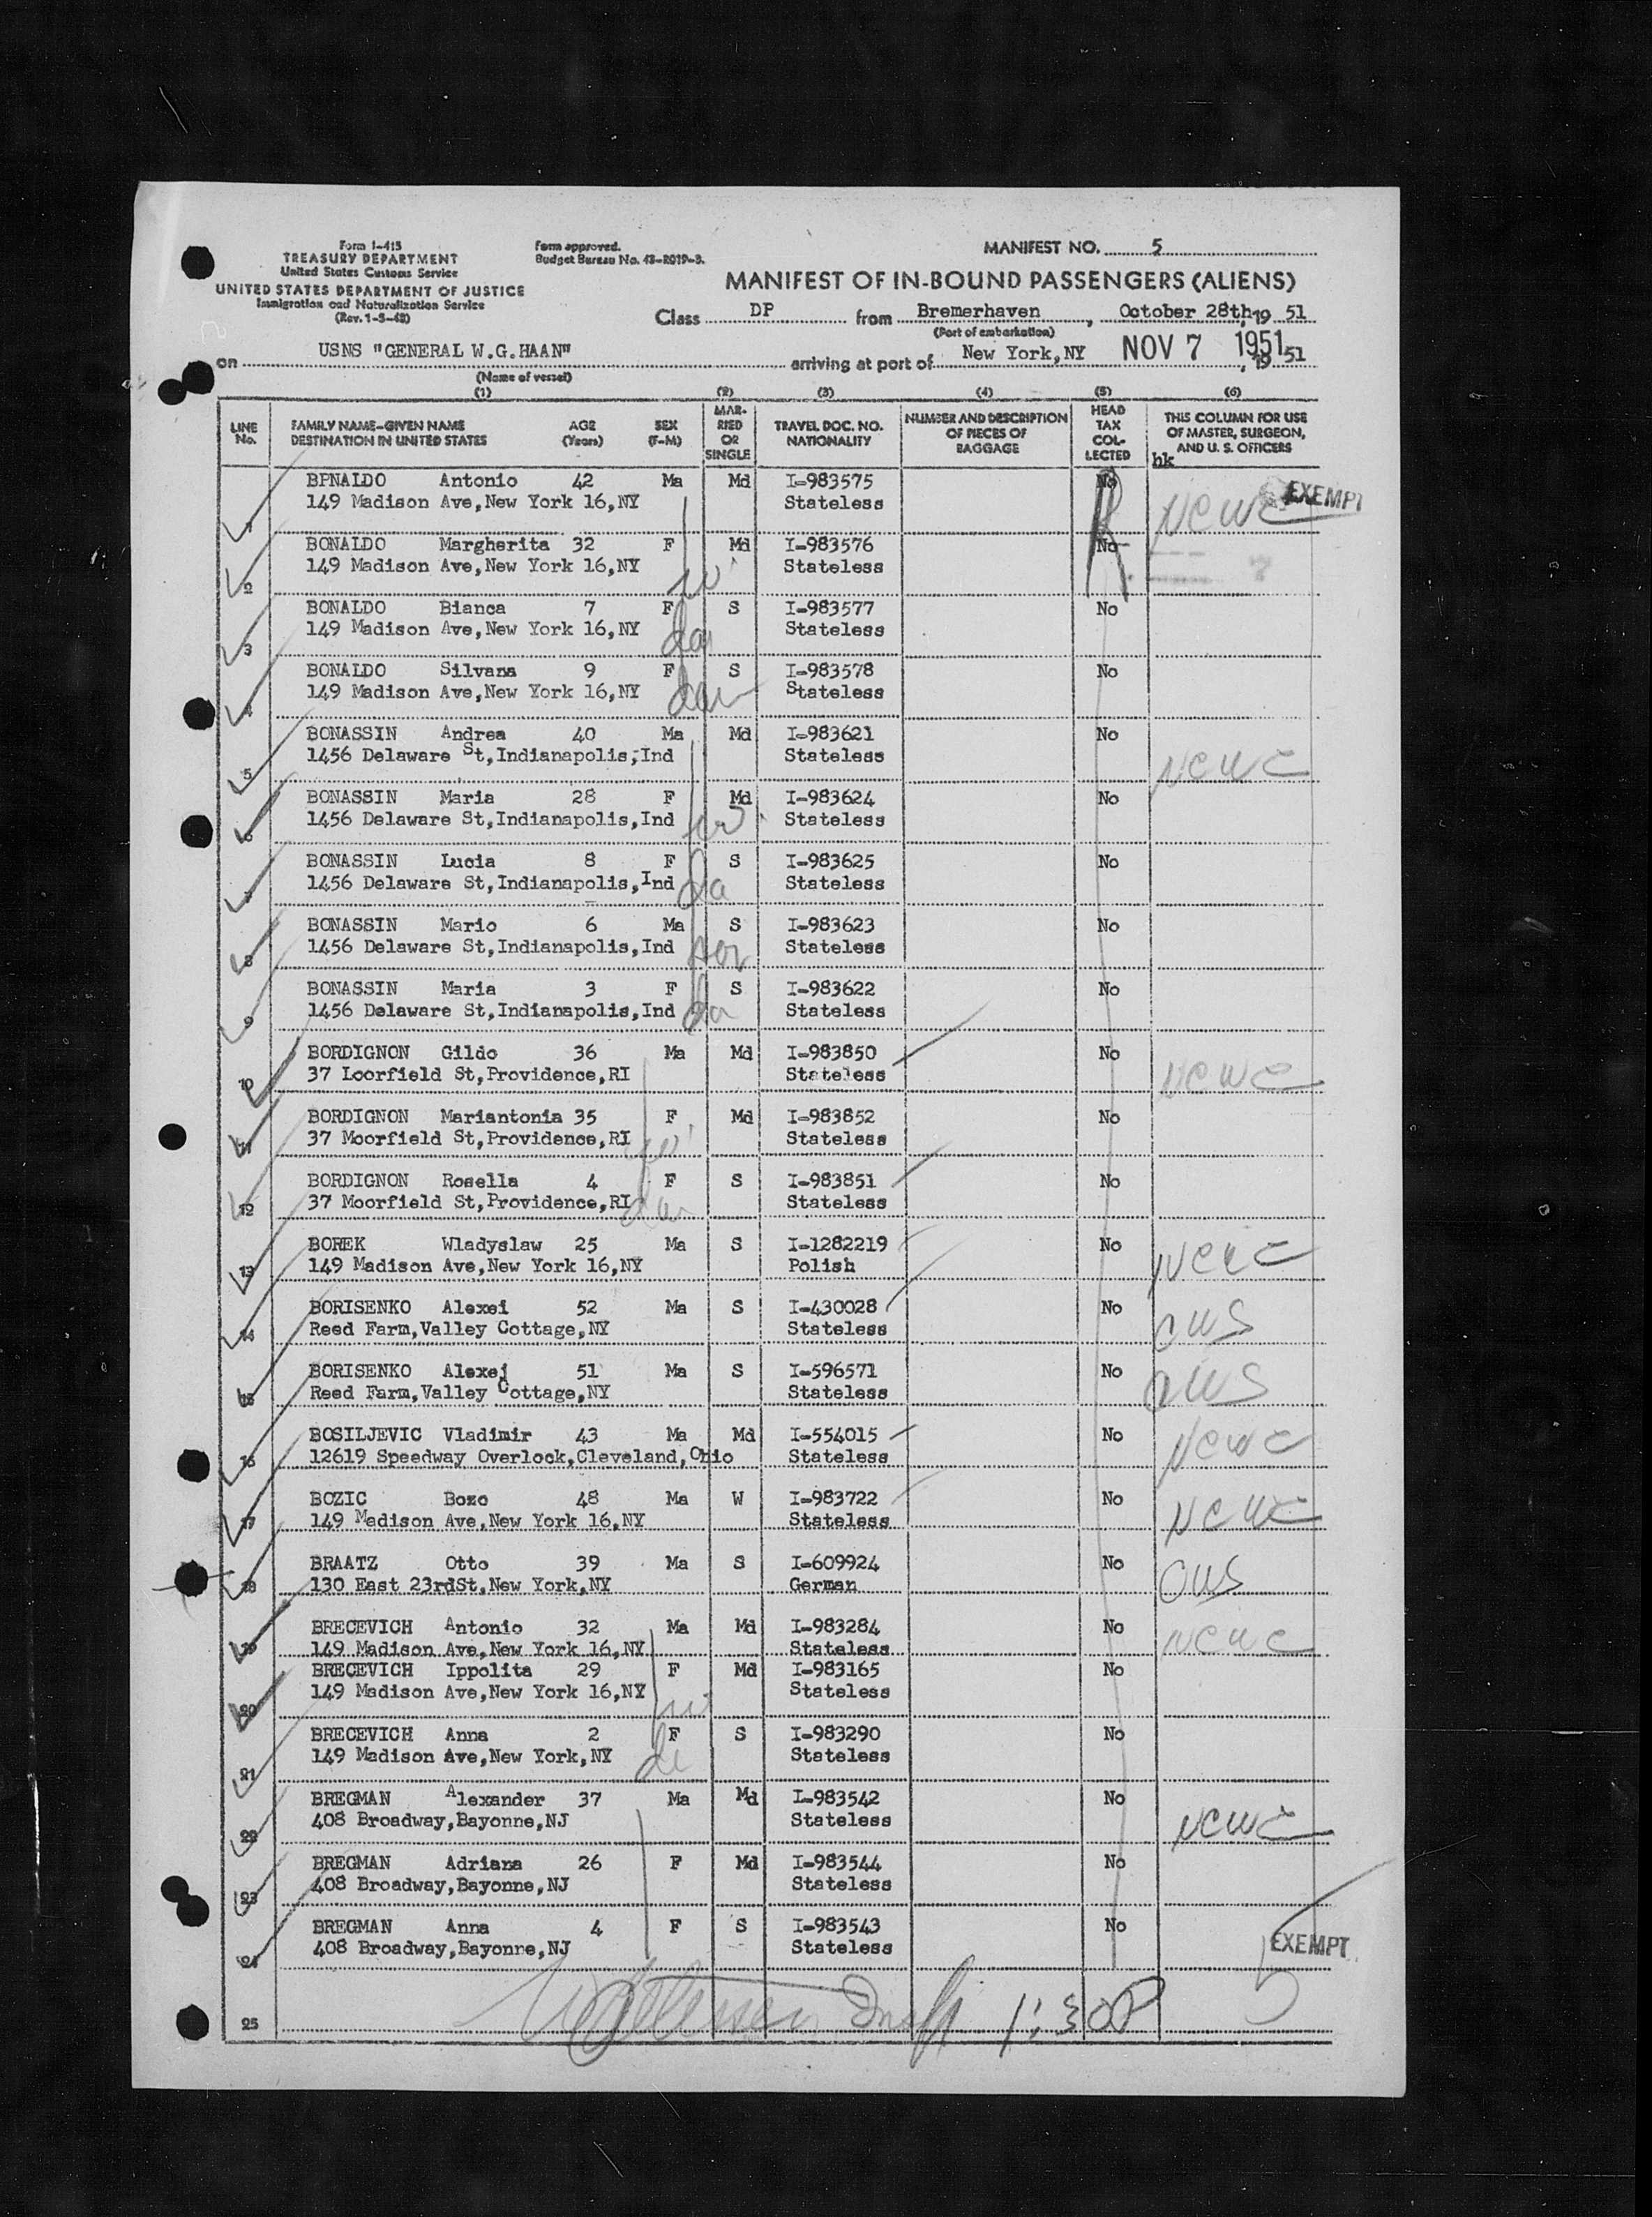 Form I-415
TREASURY DEPARTMENT
United States Customs Service
UNITED STATES DEPARTMENT OF JUSTICE
Immigration and Naturalization Service
(Rev. 1-5-48)
Form approved.
Budget Bureau No. 43-R019-3.
MANIFEST NO. 5
MANIFEST OF IN-BOUND PASSENGERS (ALIENS)
Class DP from Bremerhaven, October 28th, 19 51
(Port of embarkation)
on USNS "GENERAL W.G.HAAN" arriving at port of New York,NY NOV 7 1951, 19 51
(Name of vessel)
(1) (2) (3) (4) (5) (6)
LINE No. FAMILY NAME—GIVEN NAME DESTINATION IN UNITED STATES AGE (Years) SEX (F-M) MARRIED OR SINGLE TRAVEL DOC. NO. NATIONALITY NUMBER AND DESCRIPTION OF PIECES OF BAGGAGE HEAD TAX COLLECTED THIS COLUMN FOR USE OF MASTER, SURGEON, AND U. S. OFFICERS
hk
BPNALDO Antonio 42 Ma Md I-983575 No NCWC EXEMPT
1 149 Madison Ave,New York 16,NY Stateless
BONALDO Margherita 32 F Md I-983576 No
2 149 Madison Ave,New York 16,NY wi Stateless
BONALDO Bianca 7 F S I-983577 No
3 149 Madison Ave,New York 16,NY dau Stateless
BONALDO Silvana 9 F S I-983578 No
4 149 Madison Ave,New York 16,NY dau Stateless
BONASSIN Andrea 40 Ma Md I-983621 No
5 1456 Delaware St,Indianapolis,Ind Stateless NCWC
BONASSIN Maria 28 F Md I-983624 No
6 1456 Delaware St,Indianapolis,Ind wi Stateless
BONASSIN Lucia 8 F S I-983625 No
7 1456 Delaware St,Indianapolis,Ind da Stateless
BONASSIN Mario 6 Ma S I-983623 No
8 1456 Delaware St,Indianapolis,Ind son Stateless
BONASSIN Maria 3 F S I-983622 No
9 1456 Delaware St,Indianapolis,Ind da Stateless
BORDIGNON Gildo 36 Ma Md I-983850 No
10 37 Loorfield St,Providence,RI Stateless NCWC
BORDIGNON Mariantonia 35 F Md I-983852 No
11 37 Moorfield St,Providence,RI wi Stateless
BORDIGNON Rosella 4 F S I-983851 No
12 37 Moorfield St,Providence,RI dau Stateless
BOREK Wladyslaw 25 Ma S I-1282219 No NCWC
13 149 Madison Ave,New York 16,NY Polish
BORISENKO Alexei 52 Ma S I-430028 No
14 Reed Farm,Valley Cottage,NY Stateless CWS
BORISENKO Alexej 51 Ma S I-596571 No
15 Reed Farm,Valley Cottage,NY Stateless CWS
BOSILJEVIC Vladimir 43 Ma Md I-554015 No NCWC
16 12619 Speedway Overlock,Cleveland,Ohio Stateless
BOZIC Bozo 48 Ma W I-983722 No
17 149 Madison Ave,New York 16,NY Stateless NCWC
BRAATZ Otto 39 Ma S I-609924 No
18 130 East 23rdSt,New York,NY German CWS
BRECEVICH Antonio 32 Ma Md I-983284 No
19 149 Madison Ave,New York 16,NY Stateless NCWC
BRECEVICH Ippolita 29 F Md I-983165 No
20 149 Madison Ave,New York 16,NY wi Stateless
BRECEVICH Anna 2 F S I-983290 No
21 149 Madison Ave,New York,NY da Stateless
BREGMAN Alexander 37 Ma Md I-983542 No
22 408 Broadway,Bayonne,NJ Stateless NCWC
BREGMAN Adriana 26 F Md I-983544 No
23 408 Broadway,Bayonne,NJ Stateless
BREGMAN Anna 4 F S I-983543 No
24 408 Broadway,Bayonne,NJ Stateless EXEMPT
25 Insp 1:30P 5